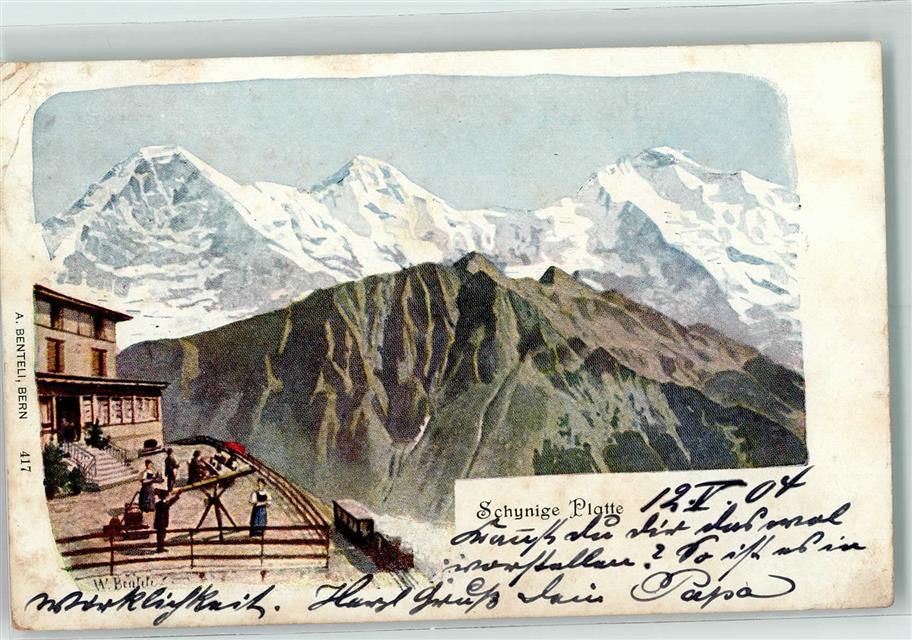 A. BENTELI, BERN
417
Schynige Platte
12. V. 04
Kannst du dir das wol
vorstellen? So ist es in
W. Benteli
Wirklichkeit. Herzl Gruß dein Papa